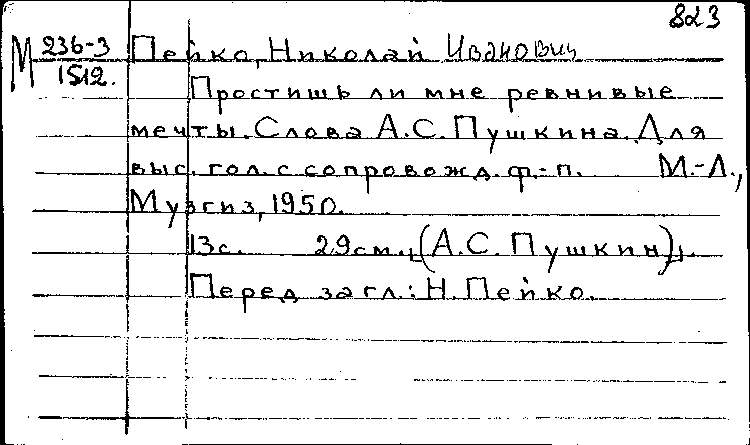 823
М 236-3 Пейко, Николай Иванович
1512.
Простишь ли мне ревнивые
мечты. Слова А.С. Пушкина. Для
выс. гол. с сопровожд. ф.-п. М.-Л.,
Музгиз, 1950.
13с. 29см. [(А.С. Пушкин)].
Перед загл.: Н. Пейко.